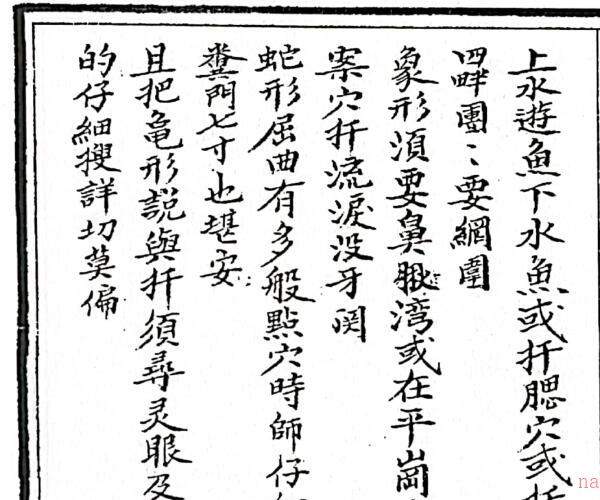 上水遊魚下水魚或扦腮穴或扦
四畔團〻要網圍
象形須要鼻眼湾或在平崗
案穴扦流淚没牙関
蛇形屈曲有多般點穴時師仔
糞門七寸也堪安
且把亀形説與扦須尋灵眼及
的仔細搜詳切莫偏
na